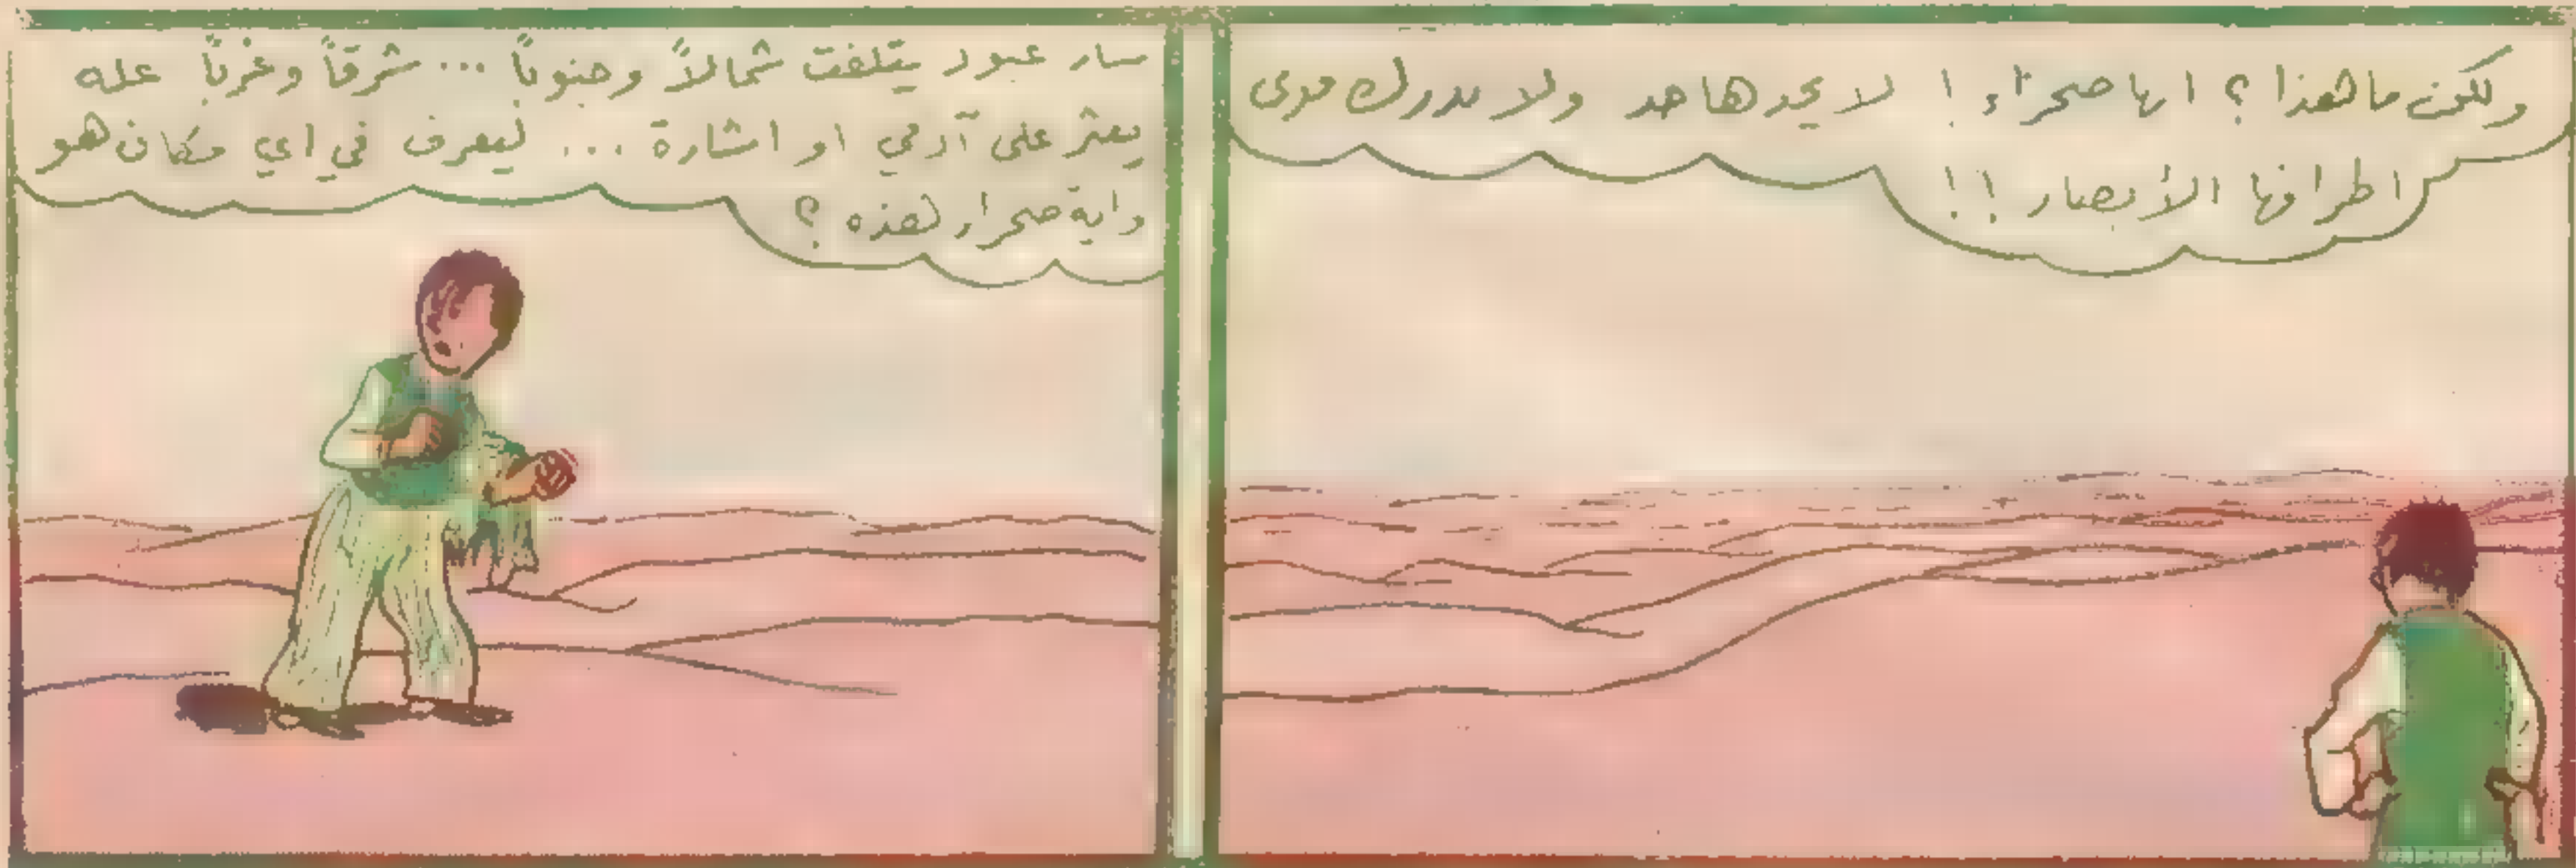 ولكن ما هذا ؟ انها صحراء ! لا يحدها حد ولا يدرك مدى
اطرافها الأبصار !!
سار عبود يتلفت شمالاً وجنوباً ... شرقاً وغرباً عله
يعثر على آدمي او اشارة ... ليعرف في اي مكان هو
واية صحراء هذه ؟